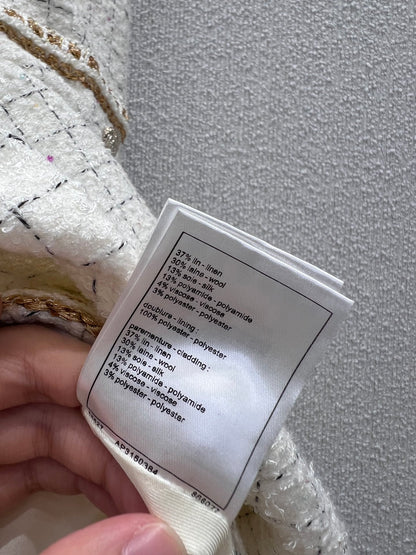 37% lin - linen
30% laine - wool
13% soie - silk
13% polyamide - polyamide
4% viscose - viscose
3% polyester - polyester
doublure - lining :
100% polyester - polyester
parementure - cladding :
37% lin - linen
30% laine - wool
13% soie - silk
13% polyamide - polyamide
4% viscose - viscose
3% polyester - polyester